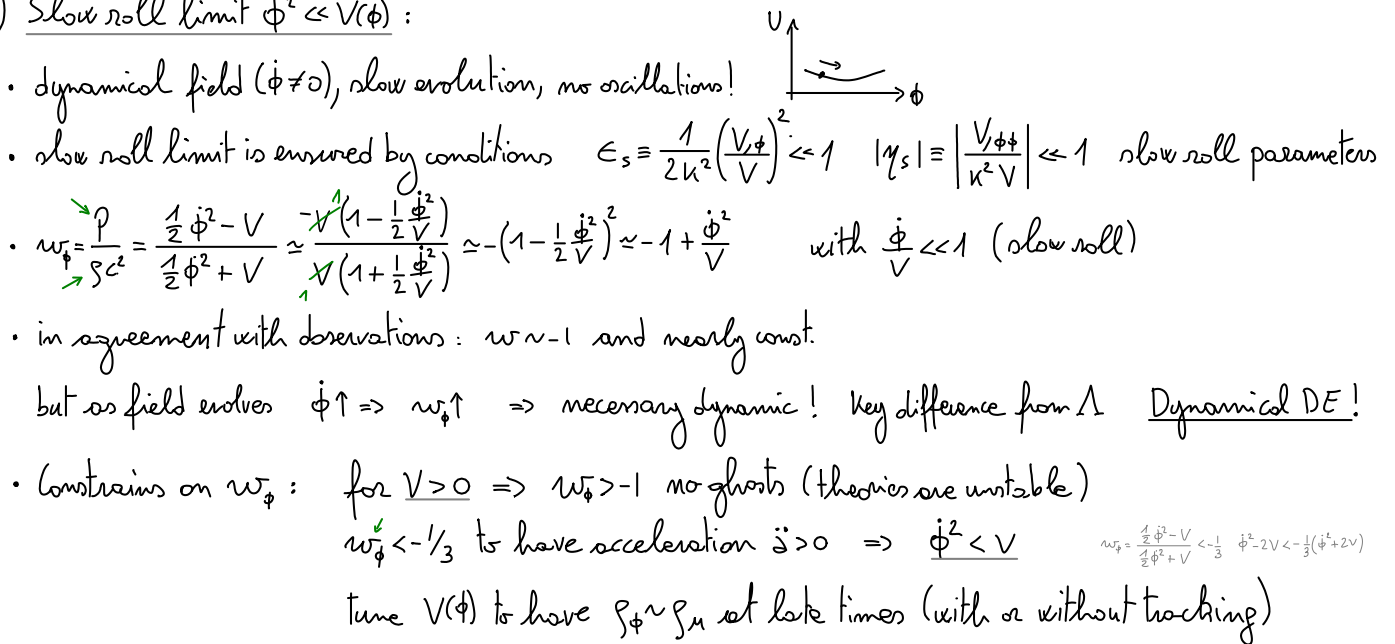 ) Slow roll limit ϕ̇² << V(ϕ) :
U
ϕ
• dynamical field (ϕ̇≠0), slow evolution, no oscillations!
• slow roll limit is ensured by conditions ϵₛ ≡ 1/(2κ²) (V,ϕ/V)² << 1 |ηₛ| ≡ |V,ϕϕ/(κ² V)| << 1 slow roll parameters
• w_ϕ = P/(ρc²) = (½ϕ̇² - V)/(½ϕ̇² + V) ≃ -V(1 - ½ ϕ̇²/V)/(V(1 + ½ ϕ̇²/V)) ≃ -(1 - ½ ϕ̇²/V)² ≃ -1 + ϕ̇²/V with ϕ̇/V <<1 (slow roll)
1
1
• in agreement with observations : w ~ -1 and nearly const.
but as field evolves ϕ̇↑ => w_ϕ↑ => necessary dynamic ! Key difference from Λ Dynamical DE !
• Constrains on w_ϕ : for V > 0 => w_ϕ > -1 no ghosts (theories are unstable)
w_ϕ < -1/3 to have acceleration ä > 0 => ϕ̇² < V w_ϕ = (½ϕ̇² - V)/(½ϕ̇² + V) < -1/3 ϕ̇² - 2V < -1/3(ϕ̇² + 2V)
tune V(ϕ) to have ρ_ϕ ~ ρ_M at late times (with or without tracking)